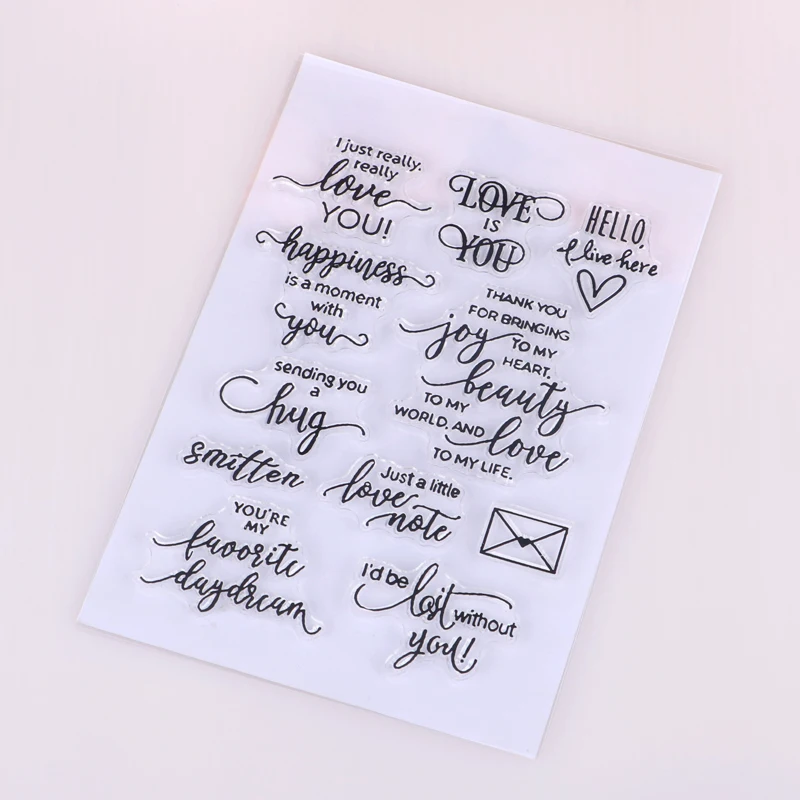 I just really,
really
love
YOU!
LOVE
IS
YOU
HELLO,
I live here
happiness
is a moment
with
you
THANK YOU
FOR BRINGING
joy TO MY
HEART,
beauty
TO MY
WORLD, AND
love
TO MY LIFE.
sending you
a
hug
smitten
Just a little
love
note
YOU'RE
MY
favorite
daydream
I'd be
lost without
you!